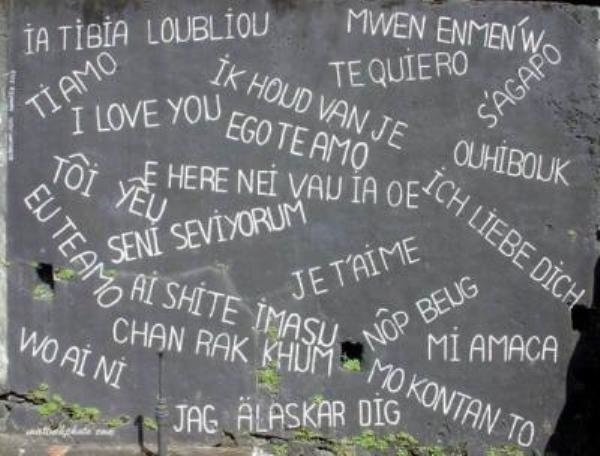 İA TİBİA LOUBLİOU
MWEN ENMEN'W
Tİ AMO
İK HOUD VAN JE
TE QUİERO
S'AGAPO
I LOVE YOU
EGO TE AMO
OUHİBOUK
TÔİ YÊU
E HERE NEİ VAU İA OE
İCH LİEBE DİCH
EU TE AMO
SENİ SEVİYORUM
JE T'AİME
Aİ SHİTE İMASU
NÔP BEUG
WO Aİ Nİ
CHAN RAK KHUM
Mİ AMACA
MO KONTAN TO
JAG ÄLASKAR DİG